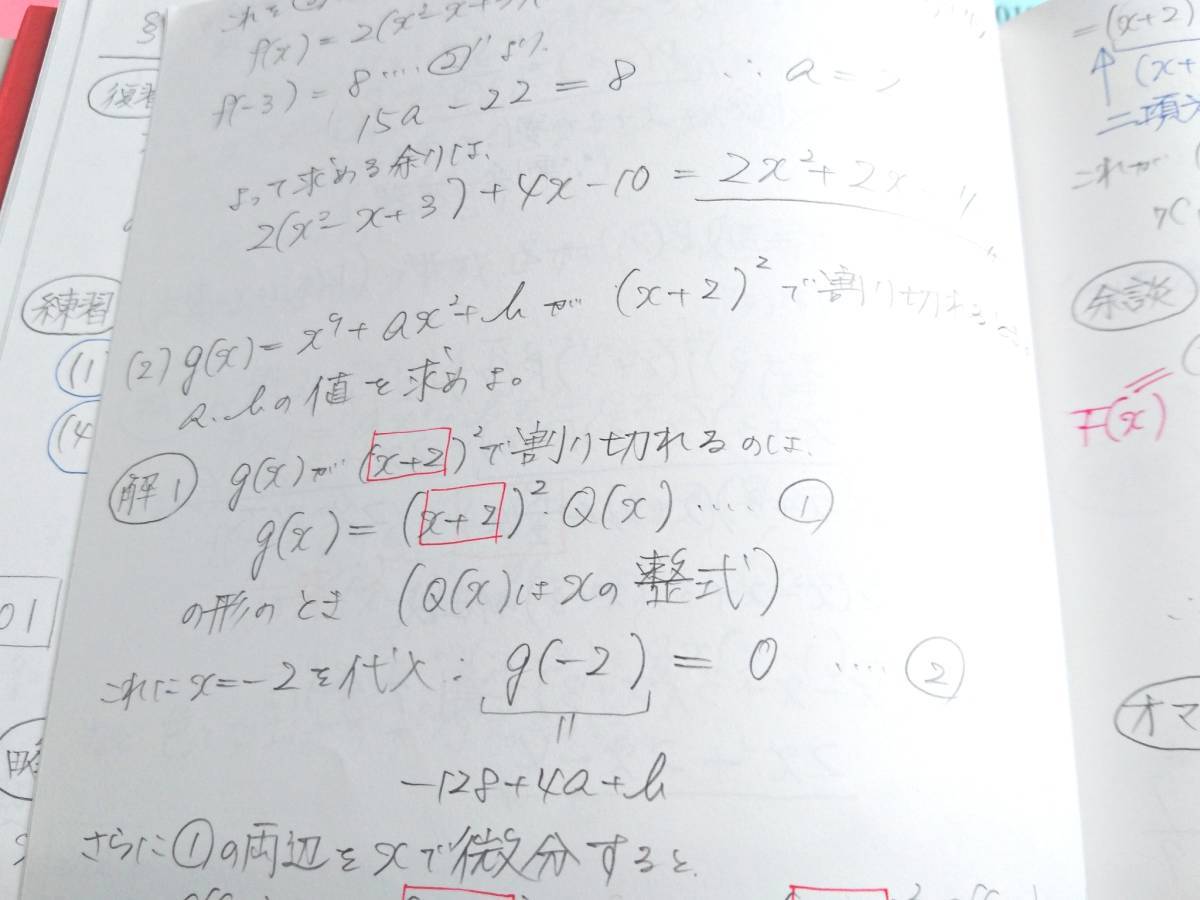 f(x) = 2(x²-x+3)
f(-3) = 8 ‥‥ ②''より.
15a - 22 = 8 ∴ a = 2
よって求める余りは、
2(x²-x+3)+4x-10 = 2x²+2x
(2) g(x) = x⁹+ax²+b が (x+2)² で割り切れるとき、
a、bの値を求めよ。
解1 g(x)が(x+2)²で割り切れるのは、
g(x) = (x+2)²·Q(x) ‥‥ ①
の形のとき (Q(x)はxの整式)
これにx=-2を代入: g(-2) = 0 ‥‥ ②
-128+4a+b
さらに①の両辺をxで微分すると、
復習
練習
(1)
(4
01
=(x+2)
(x+
二項
これが
余談
F(x)
オマ